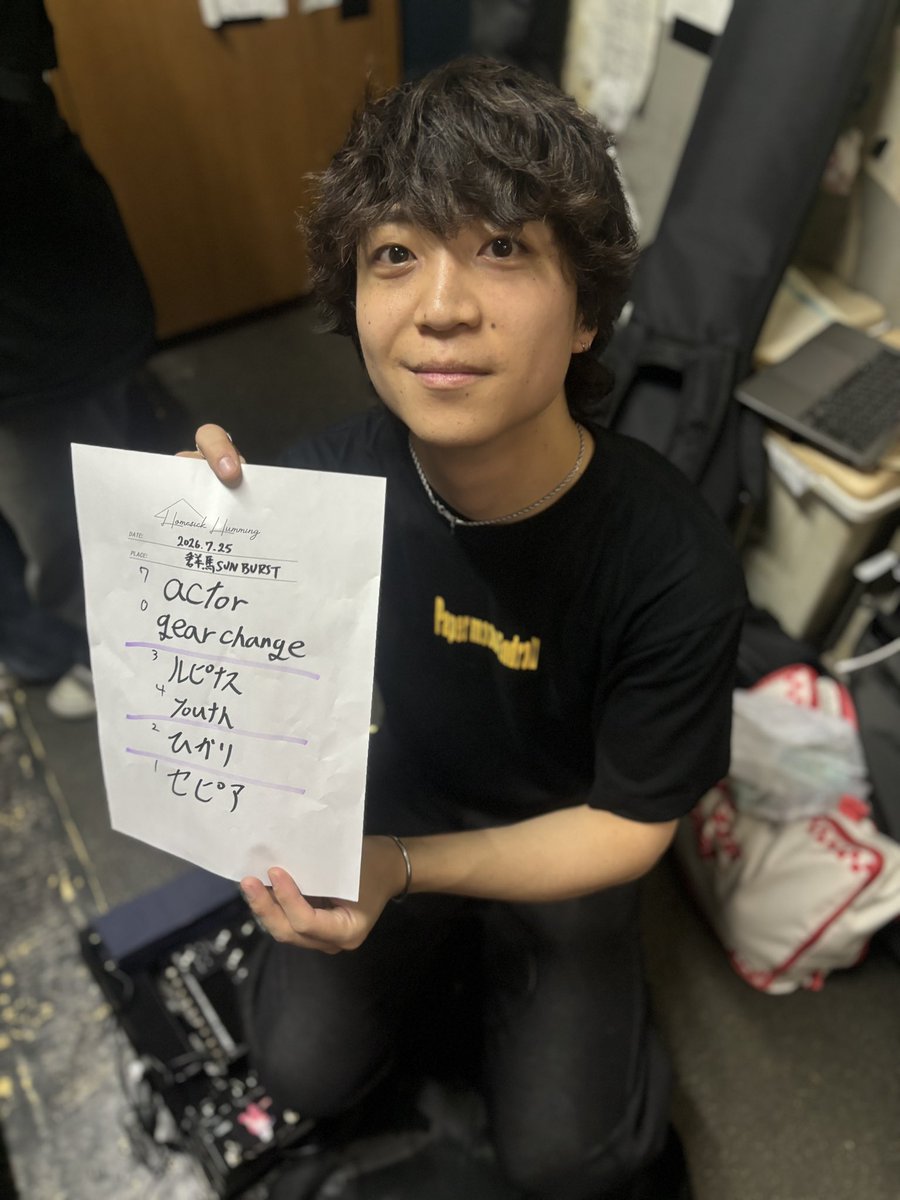 Homesick Humming
DATE: 2026.7.25
PLACE: 群馬SUN BURST
7 actor
0 gear change
3 ルピナス
4 Youth
2 ひかり
1 セピア